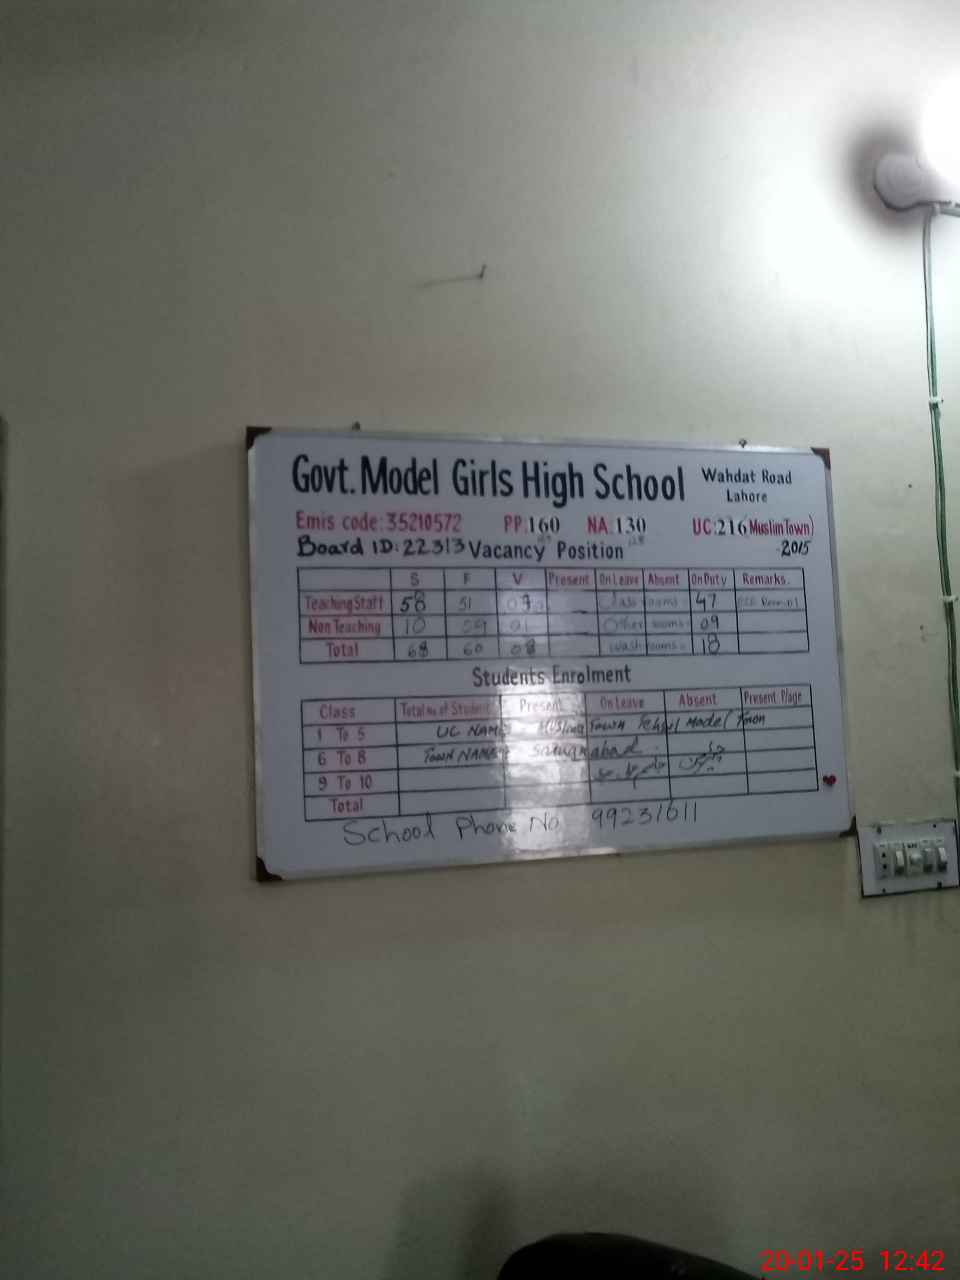 Govt. Model Girls High School
Wahdat Road
Lahore
Emis code: 35210572 PP.160 NA.130 UC:216 Muslim Town)
Board ID: 22313 Vacancy Position 2015
S F V Present On Leave Absent On Duty Remarks.
Teaching Staff 58 51 07 Class rooms: 47
Non Teaching 10 09 01 Other rooms: 09
Total 68 60 08 wash rooms: 18
Students Enrolment
Class Total No of Student Present On Leave Absent Present P/age
1 To 5 UC NAME Muslim Town Tehsil Model Town
6 To 8 Town NAME
9 To 10
Total
School Phone No 99231611
20-01-25 12:42